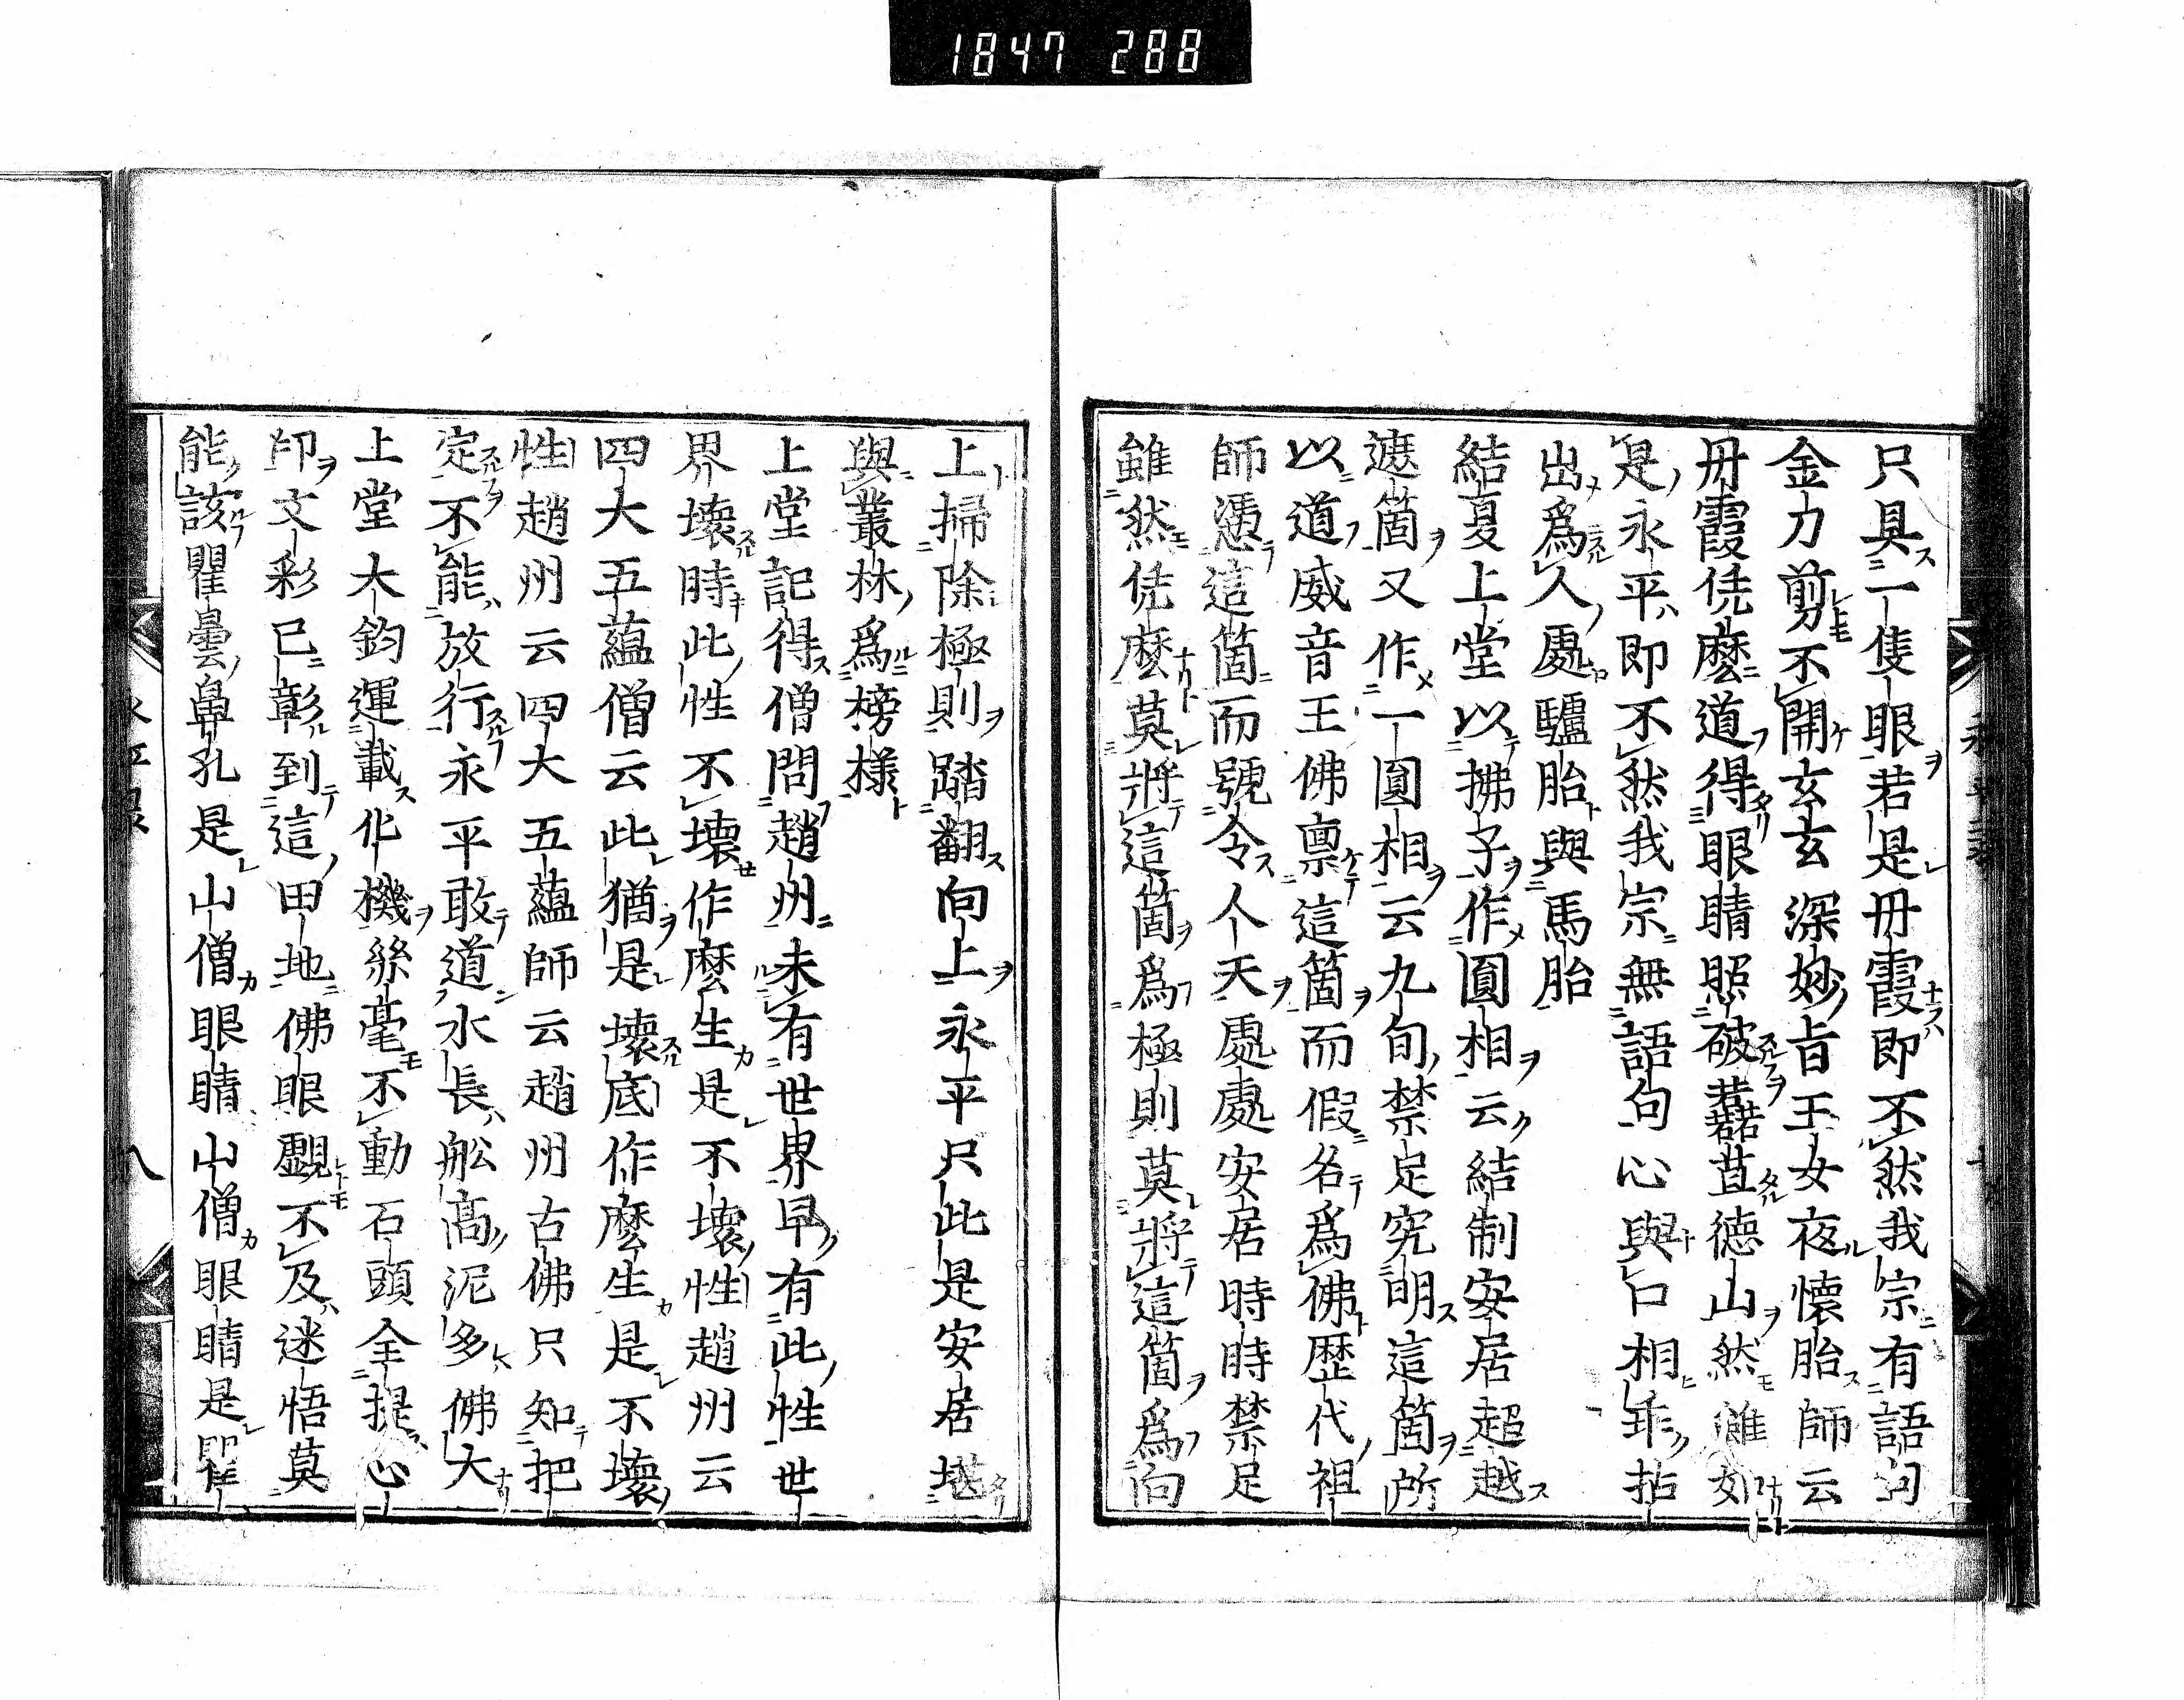 1847 288
只具一隻眼若是丹霞即不然我宗有語句
金刀剪不開玄玄深妙旨玉女夜懷胎師云
丹霞恁麼道得眼睛照破蘇苴德山然雖如
是永平即不然我宗無語句心與口相乖拈
出爲人處驢胎與馬胎
結夏上堂以拂子作圓相云結制安居超越
遮箇又作一圓相云九旬禁足究明這箇所
以道威音王佛禀這箇而假名爲佛歷代祖
師憑這箇而號令人天處處安居時時禁足
雖然恁麼莫將這箇爲極則莫將這箇爲向
上掃除極則踏翻向上永平只此是安居堪
與叢林爲榜樣
上堂記得僧問趙州未有世界早有此性世
界壞時此性不壞作麼生是不壞性趙州云
四大五蘊僧云此猶是壞底作麼生是不壞
性趙州云四大五蘊師云趙州古佛只知把
定不能放行永平敢道水長舩高泥多佛大
上堂大鈞運載化機絲毫不動石頭全提心
印文彩已彰到這田地佛眼覷不及迷悟莫
能該瞿曇鼻孔是山僧眼睛山僧眼睛是瞿
八